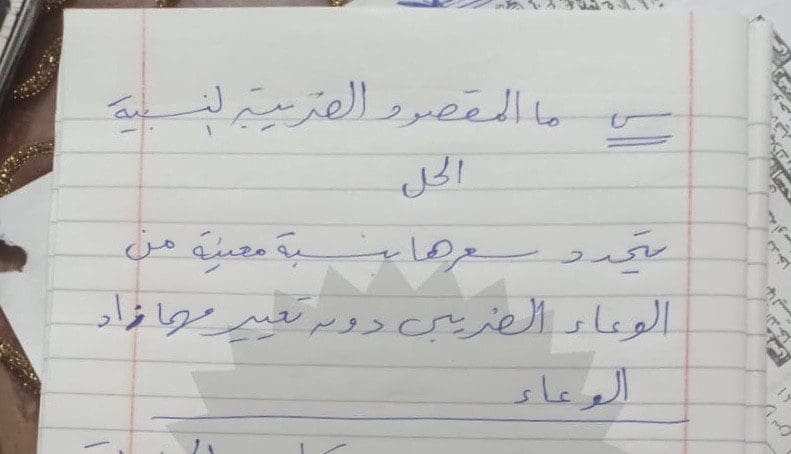 س ما المقصود الضريبة لنسبية
الحل
يتحدد سعرها بنسبة معينة من
الوعاء الضريبي دون تغيير مهما زاد
الوعاء